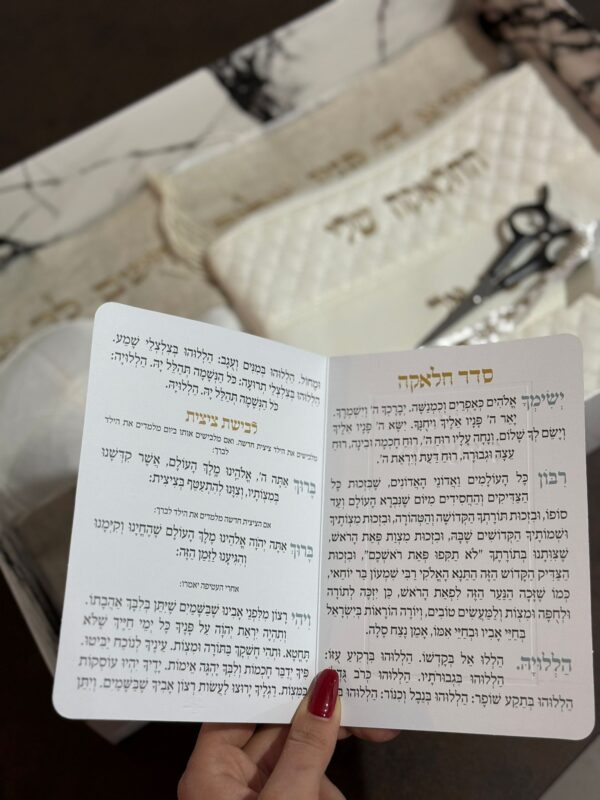 החלאקה שלי
סדר חלאקה
יְשִׂימְךָ אֱלֹהִים כְּאֶפְרַיִם וְכִמְנַשֶּׁה. יְבָרֶכְךָ ה' וְיִשְׁמְרֶךָ.
יָאֵר ה' פָּנָיו אֵלֶיךָ וִיחֻנֶּךָּ. יִשָּׂא ה' פָּנָיו אֵלֶיךָ
וְיָשֵׂם לְךָ שָׁלוֹם, וְנָחָה עָלָיו רוּחַ ה', רוּחַ חָכְמָה וּבִינָה, רוּחַ
עֵצָה וּגְבוּרָה, רוּחַ דַּעַת וְיִרְאַת ה'.
רִבּוֹן כָּל הָעוֹלָמִים וַאֲדוֹנֵי הָאֲדוֹנִים, שֶׁבִּזְכוּת כָּל
הַצַּדִּיקִים וְהַחֲסִידִים מִיּוֹם שֶׁנִּבְרָא הָעוֹלָם וְעַד
סוֹפוֹ, וּבִזְכוּת תּוֹרָתְךָ הַקְּדוֹשָׁה וְהַטְּהוֹרָה, וּבִזְכוּת מִצְוֹתֶיךָ
וּשְׁמוֹתֶיךָ הַקְּדוֹשִׁים שֶׁבָּהּ, וּבִזְכוּת מִצְוַת פְּאַת הָרֹאשׁ,
שֶׁצִּוִּיתָנוּ בְּתוֹרָתֶךָ "לֹא תַקִּפוּ פְּאַת רֹאשְׁכֶם", וּבִזְכוּת
הַצַּדִּיק הַקָּדוֹשׁ הַזֶּה הַתַּנָּא הָאֱלֹקִי רַבִּי שִׁמְעוֹן בַּר יוֹחַאי,
כְּמוֹ שֶׁזָּכָה הַנַּעַר הַזֶּה לִפְאַת הָרֹאשׁ, כֵּן יִזְכֶּה לְתוֹרָה
וּלְחֻפָּה וּמִצְוֹת וְלְמַעֲשִׂים טוֹבִים, וְיוֹרֶה הוֹרָאוֹת בְּיִשְׂרָאֵל
בְּחַיֵּי אָבִיו וּבְחַיֵּי אִמּוֹ, אָמֵן נֶצַח סֶלָה.
הַלְלוּיָהּ. הַלְלוּ אֵל בְּקָדְשׁוֹ. הַלְלוּהוּ בִּרְקִיעַ עֻזּוֹ:
הַלְלוּהוּ בִּגְבוּרֹתָיו. הַלְלוּהוּ כְּרֹב
הַלְלוּהוּ בְּתֵקַע שׁוֹפָר: הַלְלוּהוּ בְּנֵבֶל וְכִנּוֹר: הַלְלוּהוּ
וּמָחוֹל. הַלְלוּהוּ בְּמִנִּים וְעֻגָב: הַלְלוּהוּ בְּצִלְצְלֵי שָׁמַע.
הַלְלוּהוּ בְּצִלְצְלֵי תְרוּעָה: כֹּל הַנְּשָׁמָה תְּהַלֵּל יָהּ. הַלְלוּיָהּ:
כֹּל הַנְּשָׁמָה תְּהַלֵּל יָהּ. הַלְלוּיָהּ.
לבישת ציצית
מלבישים את הילד ציצית חדשה. ואם מלבישים אותו ביום מלמדים את הילד
לברך:
בָּרוּךְ אַתָּה ה', אֱלֹהֵינוּ מֶלֶךְ הָעוֹלָם, אֲשֶׁר קִדְּשָׁנוּ
בְּמִצְוֹתָיו, וְצִוָּנוּ לְהִתְעַטֵּף בַּצִּיצִית:
אם הציצית חדשה מלמדים את הילד לברך:
בָּרוּךְ אַתָּה יְהֹוָה אֱלֹהֵינוּ מֶלֶךְ הָעוֹלָם שֶׁהֶחֱיָנוּ וְקִיְּמָנוּ
וְהִגִּיעָנוּ לַזְּמַן הַזֶּה:
אחרי העטיפה יאמרו:
וִיהִי רָצוֹן מִלִּפְנֵי אָבִינוּ שֶׁבַּשָּׁמַיִם שֶׁיִּתֵּן בְּלִבְּךָ אַהֲבָתוֹ.
וְתִהְיֶה יִרְאַת יְהֹוָה עַל פָּנֶיךָ כָּל יְמֵי חַיֶּיךָ שֶׁלֹּא
תֶחֱטָא. וּתְהִי חֶשְׁקְךָ בַּתּוֹרָה וּמִצְוֹת. עֵינֶיךָ לְנֹכַח יַבִּיטוּ.
פִּיךָ יְדַבֵּר חָכְמוֹת וְלִבְּךָ יֶהְגֶּה אֵימוֹת. יָדֶיךָ יִהְיוּ עוֹסְקוֹת
בְּמִצְוֹת. רַגְלֶיךָ יָרוּצוּ לַעֲשׂוֹת רְצוֹן אָבִיךָ שֶׁבַּשָּׁמַיִם. וְיִתֵּן